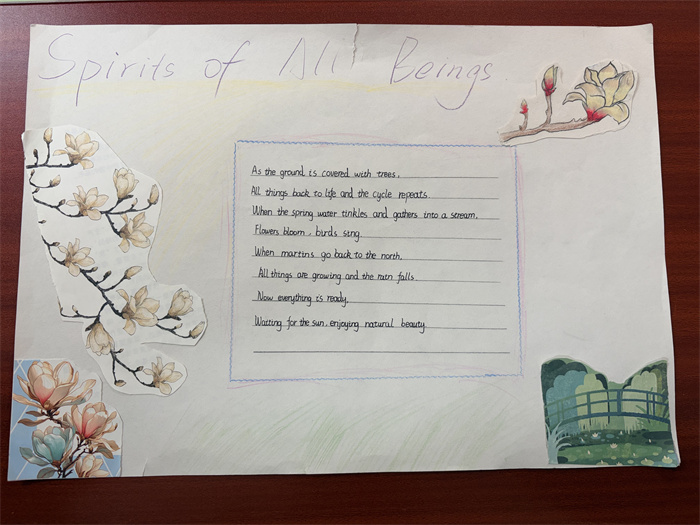 Spirits of All Beings.
As the ground is covered with trees,
All things back to life and the cycle repeats.
When the spring water tinkles and gathers into a stream,
Flowers bloom, birds sing.
When martins go back to the north,
All things are growing and the rain falls.
Now everything is ready,
Waiting for the sun, enjoying natural beauty